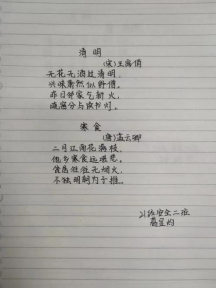 清明
(宋)王禹偁
无花无酒过清明,
兴味萧然似野僧。
昨日邻家乞新火,
晓窗分与读书灯。
寒食
(唐)孟云卿
二月江南花满枝,
他乡寒食远堪悲。
贫居往往无烟火,
不独明朝为子推。
安全二班